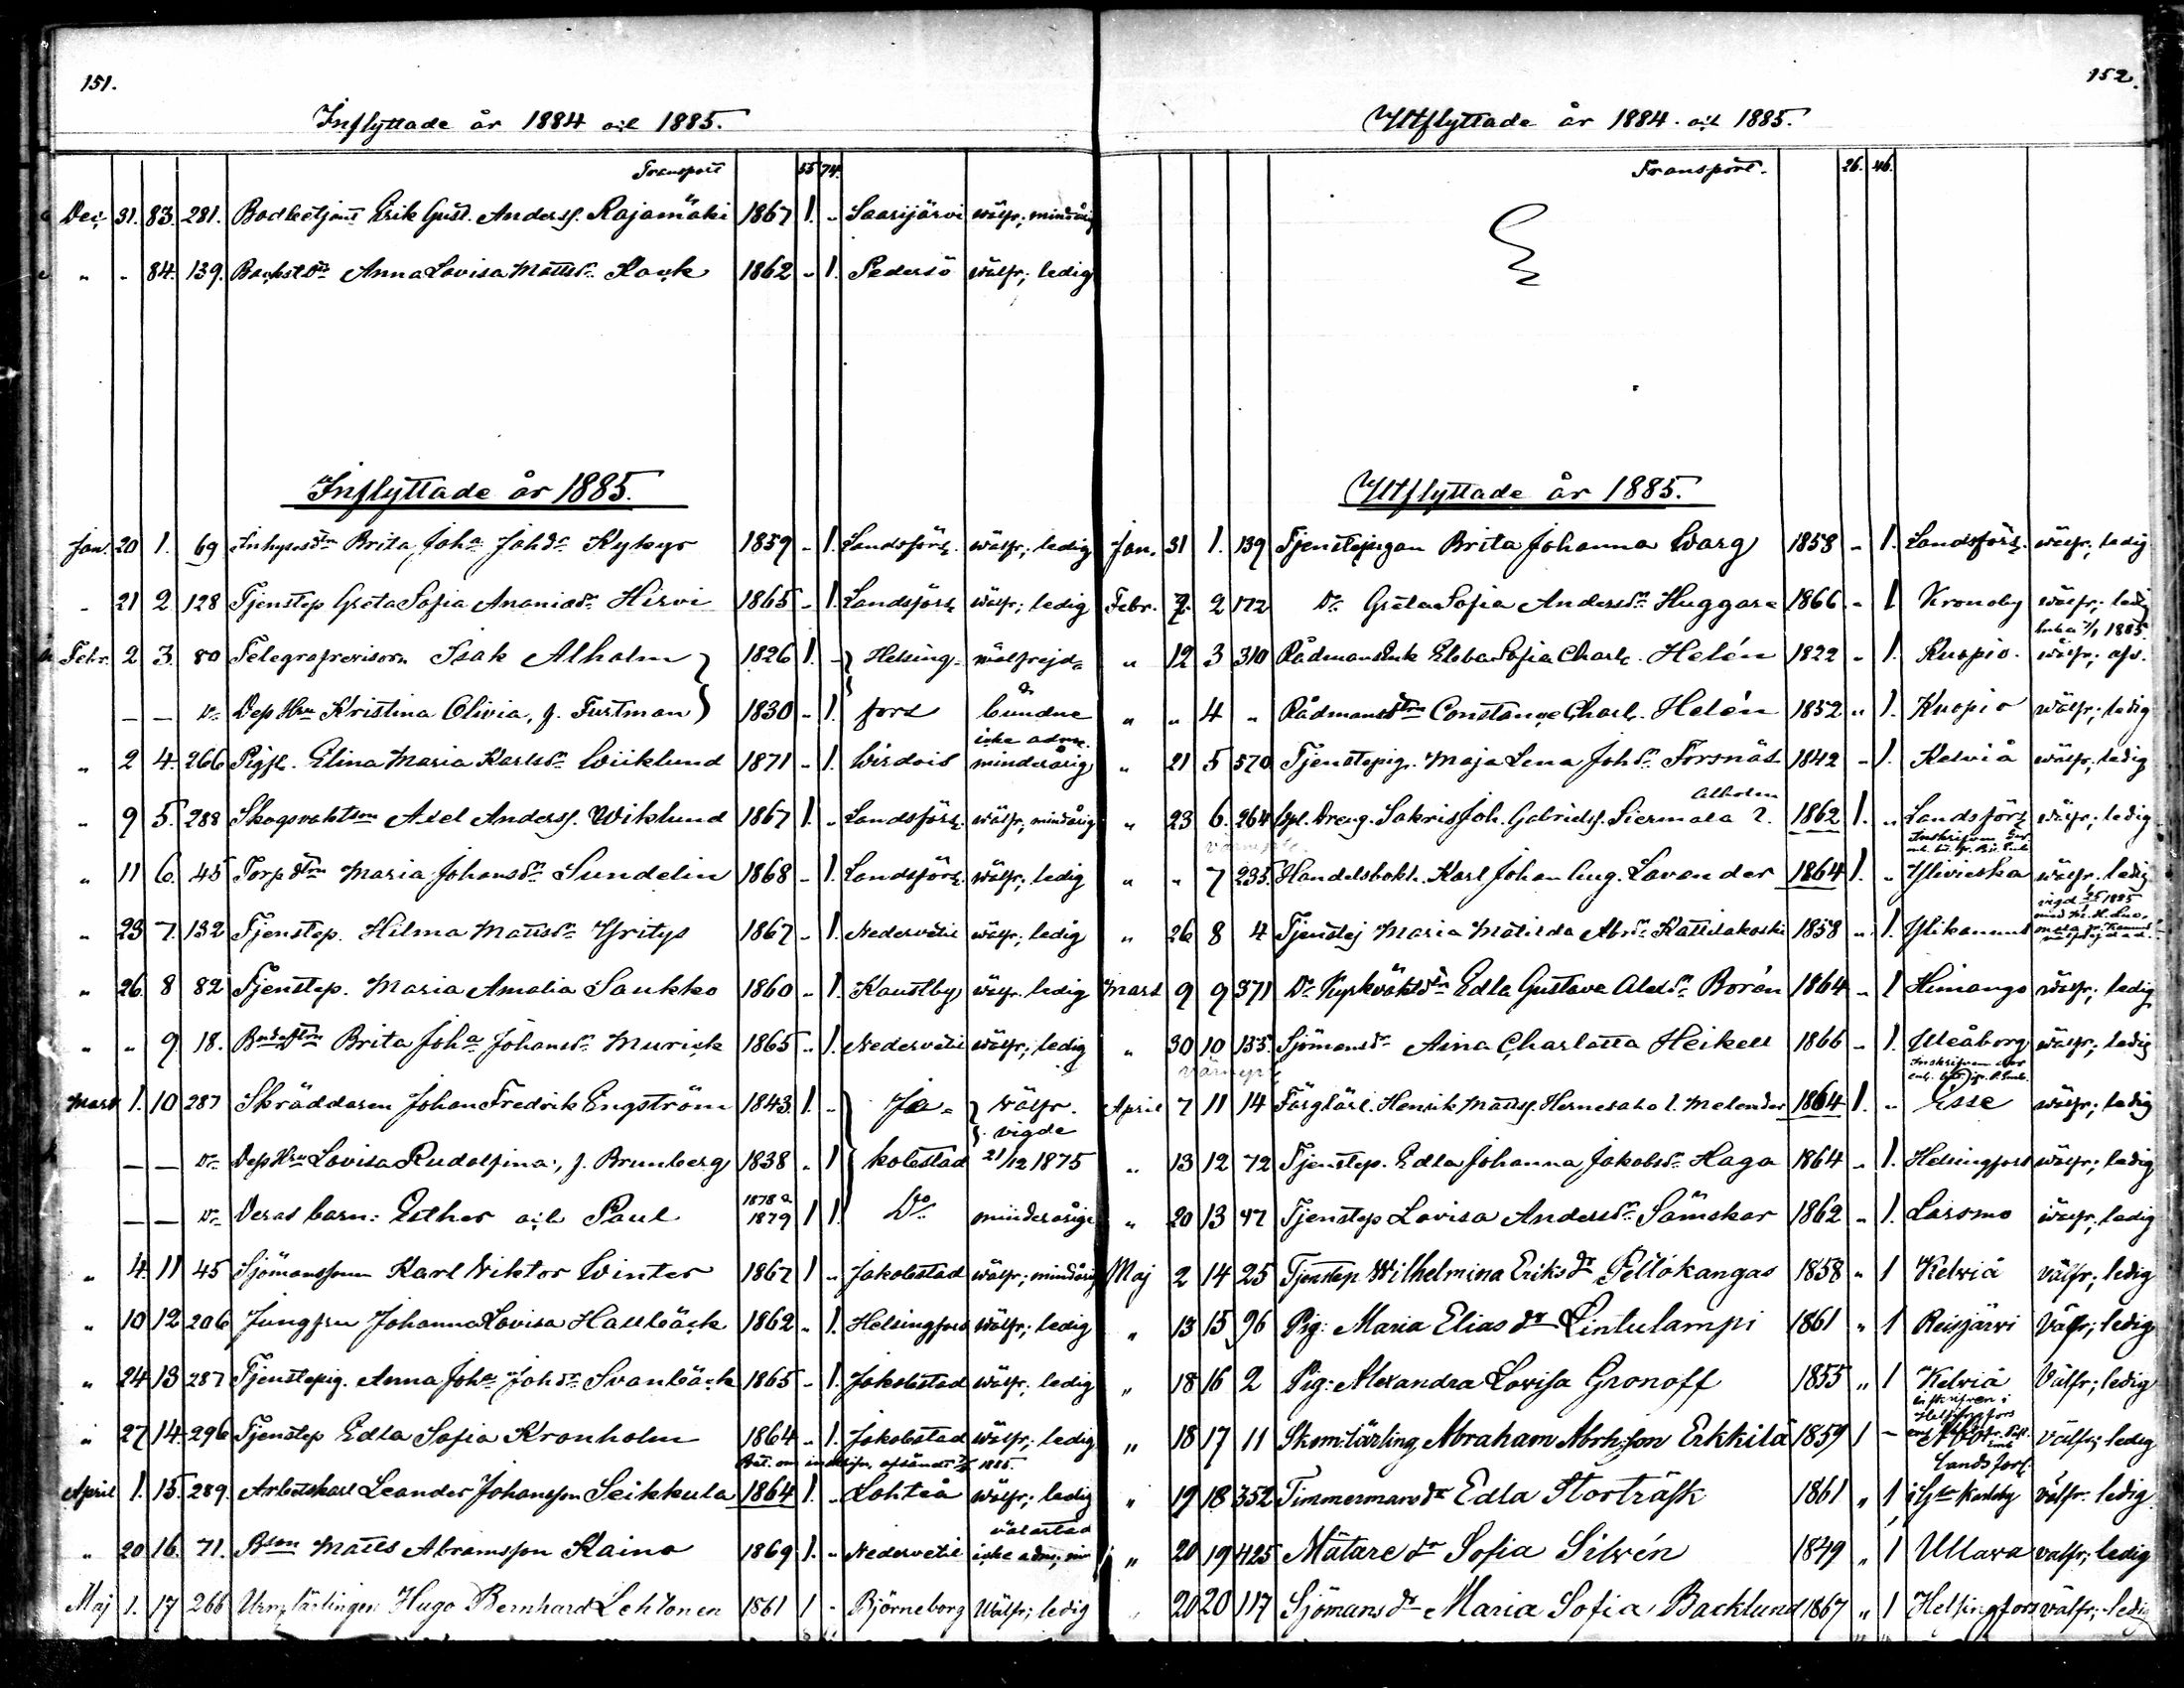 151.
Inflyttade år 1884 och 1885.
Transport 55 74.
Dec. 31. 83. 281. Erik Gust. Anderss. Rajamäki 1867 1. " Saarijärvi wälfr; mindårig
" - 84. 139. Anna Lovisa Mattsdr 1862 " 1. Pedersö wälfr; ledig
Inflyttade år 1885.
Jan. 20 1. 69 Brita Joha Johdr Kykyr 1859 - 1. Landsförs. wälfr; ledig
" 21 2 128 Tjenstep Greta Sofia Ananiasdr Hirvi 1865 - 1. Landsförs wälfr; ledig
Febr. 2 3. 80 Telegrafrevisorn Isak Alholm 1826 1. - Helsing- wälfrejd-
— — Dr Dess Hru Kristina Olivia, f. Furtman 1830 - 1. fors bundne
icke adm.
" 2 4. 266 Elina Maria Karlsdr Wiiklund 1871 - 1. Wirdois minderårig
" 9 5. 288 Axel Anderss. Wiklund 1867 1. " Landsförs. wälfr; mindårig
" 11 6. 45 Torpdtrn Maria Johansdr Sundelin 1868 - 1. Landsförs. wälfr; ledig
" 23 7. 132 Tjenstep. Hilma Mattsdr Yritys 1867 - 1. Nedervetil wälfr; ledig
" 26. 8 82 Tjenstep. Maria Amalia Saukko 1860 " 1. Kaustby wälfr. ledig
" " 9. 18. Brita Joha Johansdr Murick 1865 " 1. Nedervetil wälfr; ledig
Mars 1. 10 287 Skräddaren Johan Fredrik Engström 1843 1. - Ja- Wälfr.
vigde
— — Dr Dess Hru Lovisa Rudolfina, f. Brunberg 1838 " 1 kobstad 21/12 1875
1878 o
— — Dr Deras barn: Esther och Paul 1879 1 1. Do minderårige
" 4. 11 45 Sjömanssonen Karl Viktor Winter 1867 1 " Jakobstad wälfr; mindårig
" 10 12 206 Jungfru Johanna Lovisa Hallbäck 1862 " 1. Helsingfors wälfr; ledig
" 24 13 287 Tjenstepig. Anna Joha Johdr Svanbäck 1865 - 1. Jakobstad wälfr; ledig
" 27 14. 296 Tjenstep Edla Sofia Kronholm 1864 " 1. Jakobstad wälfr; ledig
1885.
April 1. 15. 289. Arbetskarl Leander Johansson Seikkula 1864 1. " Lohteå wälfr; ledig
" 20 16. 71. Bson Matts Abramsson Kaino 1869 1. " Nedervetil icke adm;
Maj 1. 17 266 Hugo Bernhard Lehtonen 1861 1 - Björneborg Wälfr; ledig
152.
Utflyttade år 1884. och 1885.
Transport. 26. 46.
Utflyttade år 1885.
Jan. 31 1. 139 Tjenstepigan Brita Johanna Warg 1858 - 1. Landsförs. wälfr; ledig
Febr. 7. 2 172 Dr Greta Sofia Andersdr Huggare 1866 - 1 Kronoby wälfr; ledig
1885
" 12 3 310 Rådmansenk Ebba Sofia Charl. Helén 1822 " 1. Kuopio. wälfr;
" " 4 " Rådmansdtrn Constance Charl. Helén 1852 " 1. Kuopio wälfr; ledig
" 21 5 570 Tjenstepig. Maja Lena Johdr Forsnäs 1842 - 1. Kelviå wälfr; ledig
Alholm
" 23 6. 264 Dreng. Sakris Joh. Gabrielss. Siermala 1862 1. " Landsförs wälfr; ledig
" " 7 233. Handelsbokh. Karl Johan Aug. Lavander 1864 1. " Ylivieska wälfr. ledig
vigd 1885
" 26 8 4 Maria Matilda Abrdr Kattilakoski 1858 " 1. Ylikannus
Mars 9 9 371 Dr Edla Gustava Alexdr Borén 1864 - 1 Himango wälfr; ledig
" 30 10 135. Sjömansdr Aina Charlotta Heikell 1866 - 1. Uleåborg wälfr; ledig
April 7 11 14 Färglärl. Henrik Mattss. Hernesaho l. Melender 1864 1. " Esse wälfr; ledig
" 13 12 72 Tjenstep. Edla Johanna Jakobsdr Haga 1864 " 1. Helsingfors wälfr; ledig
" 20 13 47 Tjenstep Lovisa Andersdr Sämskar 1862 " 1. Larsmo wälfr; ledig
Maj 2 14 25 Tjenstep. Wilhelmina Eriksdr Peltokangas 1858 " 1 Kelviå Välfr; ledig
" 13 15 96 Pig: Maria Eliasdr Lintulampi 1861 " 1 Reisjärvi Välfr; ledig
" 18 16 2 Pig: Alexandra Lovisa Gronoff 1855 " 1 Kelviå Välfr; ledig
" 18 17 11 Skom:lärling Abraham Abrh:son Erkkilä 1859 1 - Välfr; ledig
Landsförs.
" 19 18 352 Timmermansdr Edla Storträsk 1861 " 1 Karleby Välfr. ledig
" 20 19 425 Mätaredr Sofia Silvén 1849 " 1 Ullava välfr; ledig
" 20 20 117 Sjömansdr Maria Sofia Backlund 1867 " 1 Helsingfors välfr; ledig